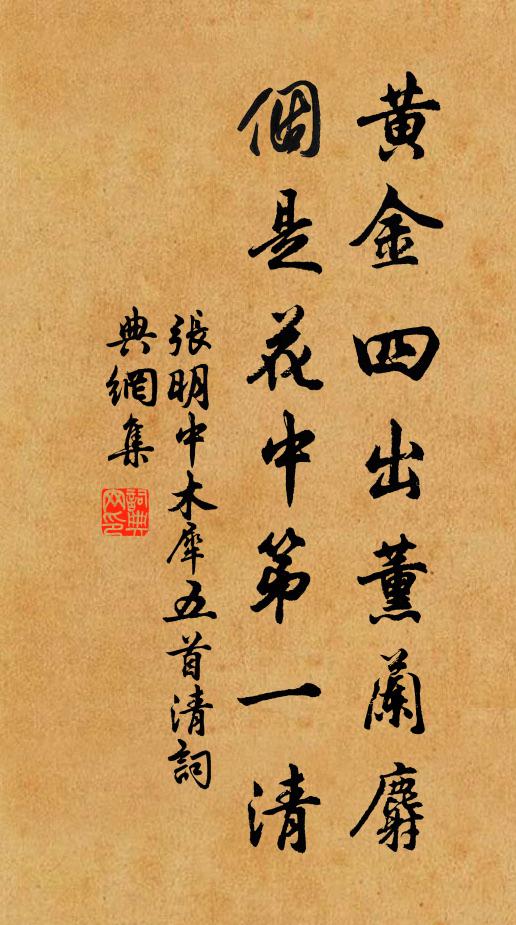 黄金四出薰蘭麝
個是花中第一清
張明中木犀五首清詞
典網集
詞典網印